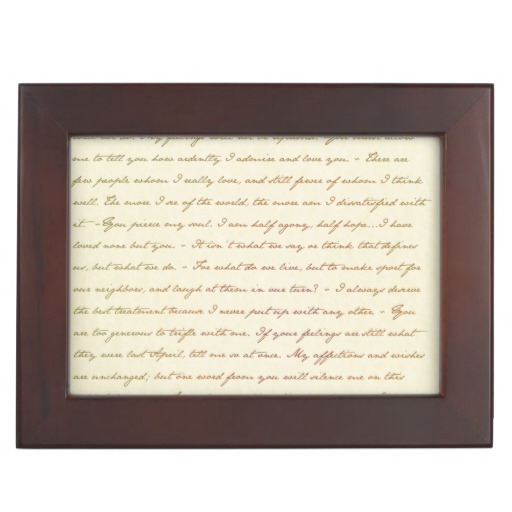 me to tell you how ardently I admire and love you. - There are
few people whom I really love, and still fewer of whom I think
well. The more I see of the world, the more am I dissatisfied with
it. - You pierce my soul. I am half agony, half hope...I have
loved none but you. - It isn't what we say or think that defines
us, but what we do. - For what do we live, but to make sport for
our neighbors, and laugh at them in our turn? - I always deserve
the best treatment because I never put up with any other. - You
are too generous to trifle with me. If your feelings are still what
they were last April, tell me so at once. My affections and wishes
are unchanged; but one word from you will silence me on this